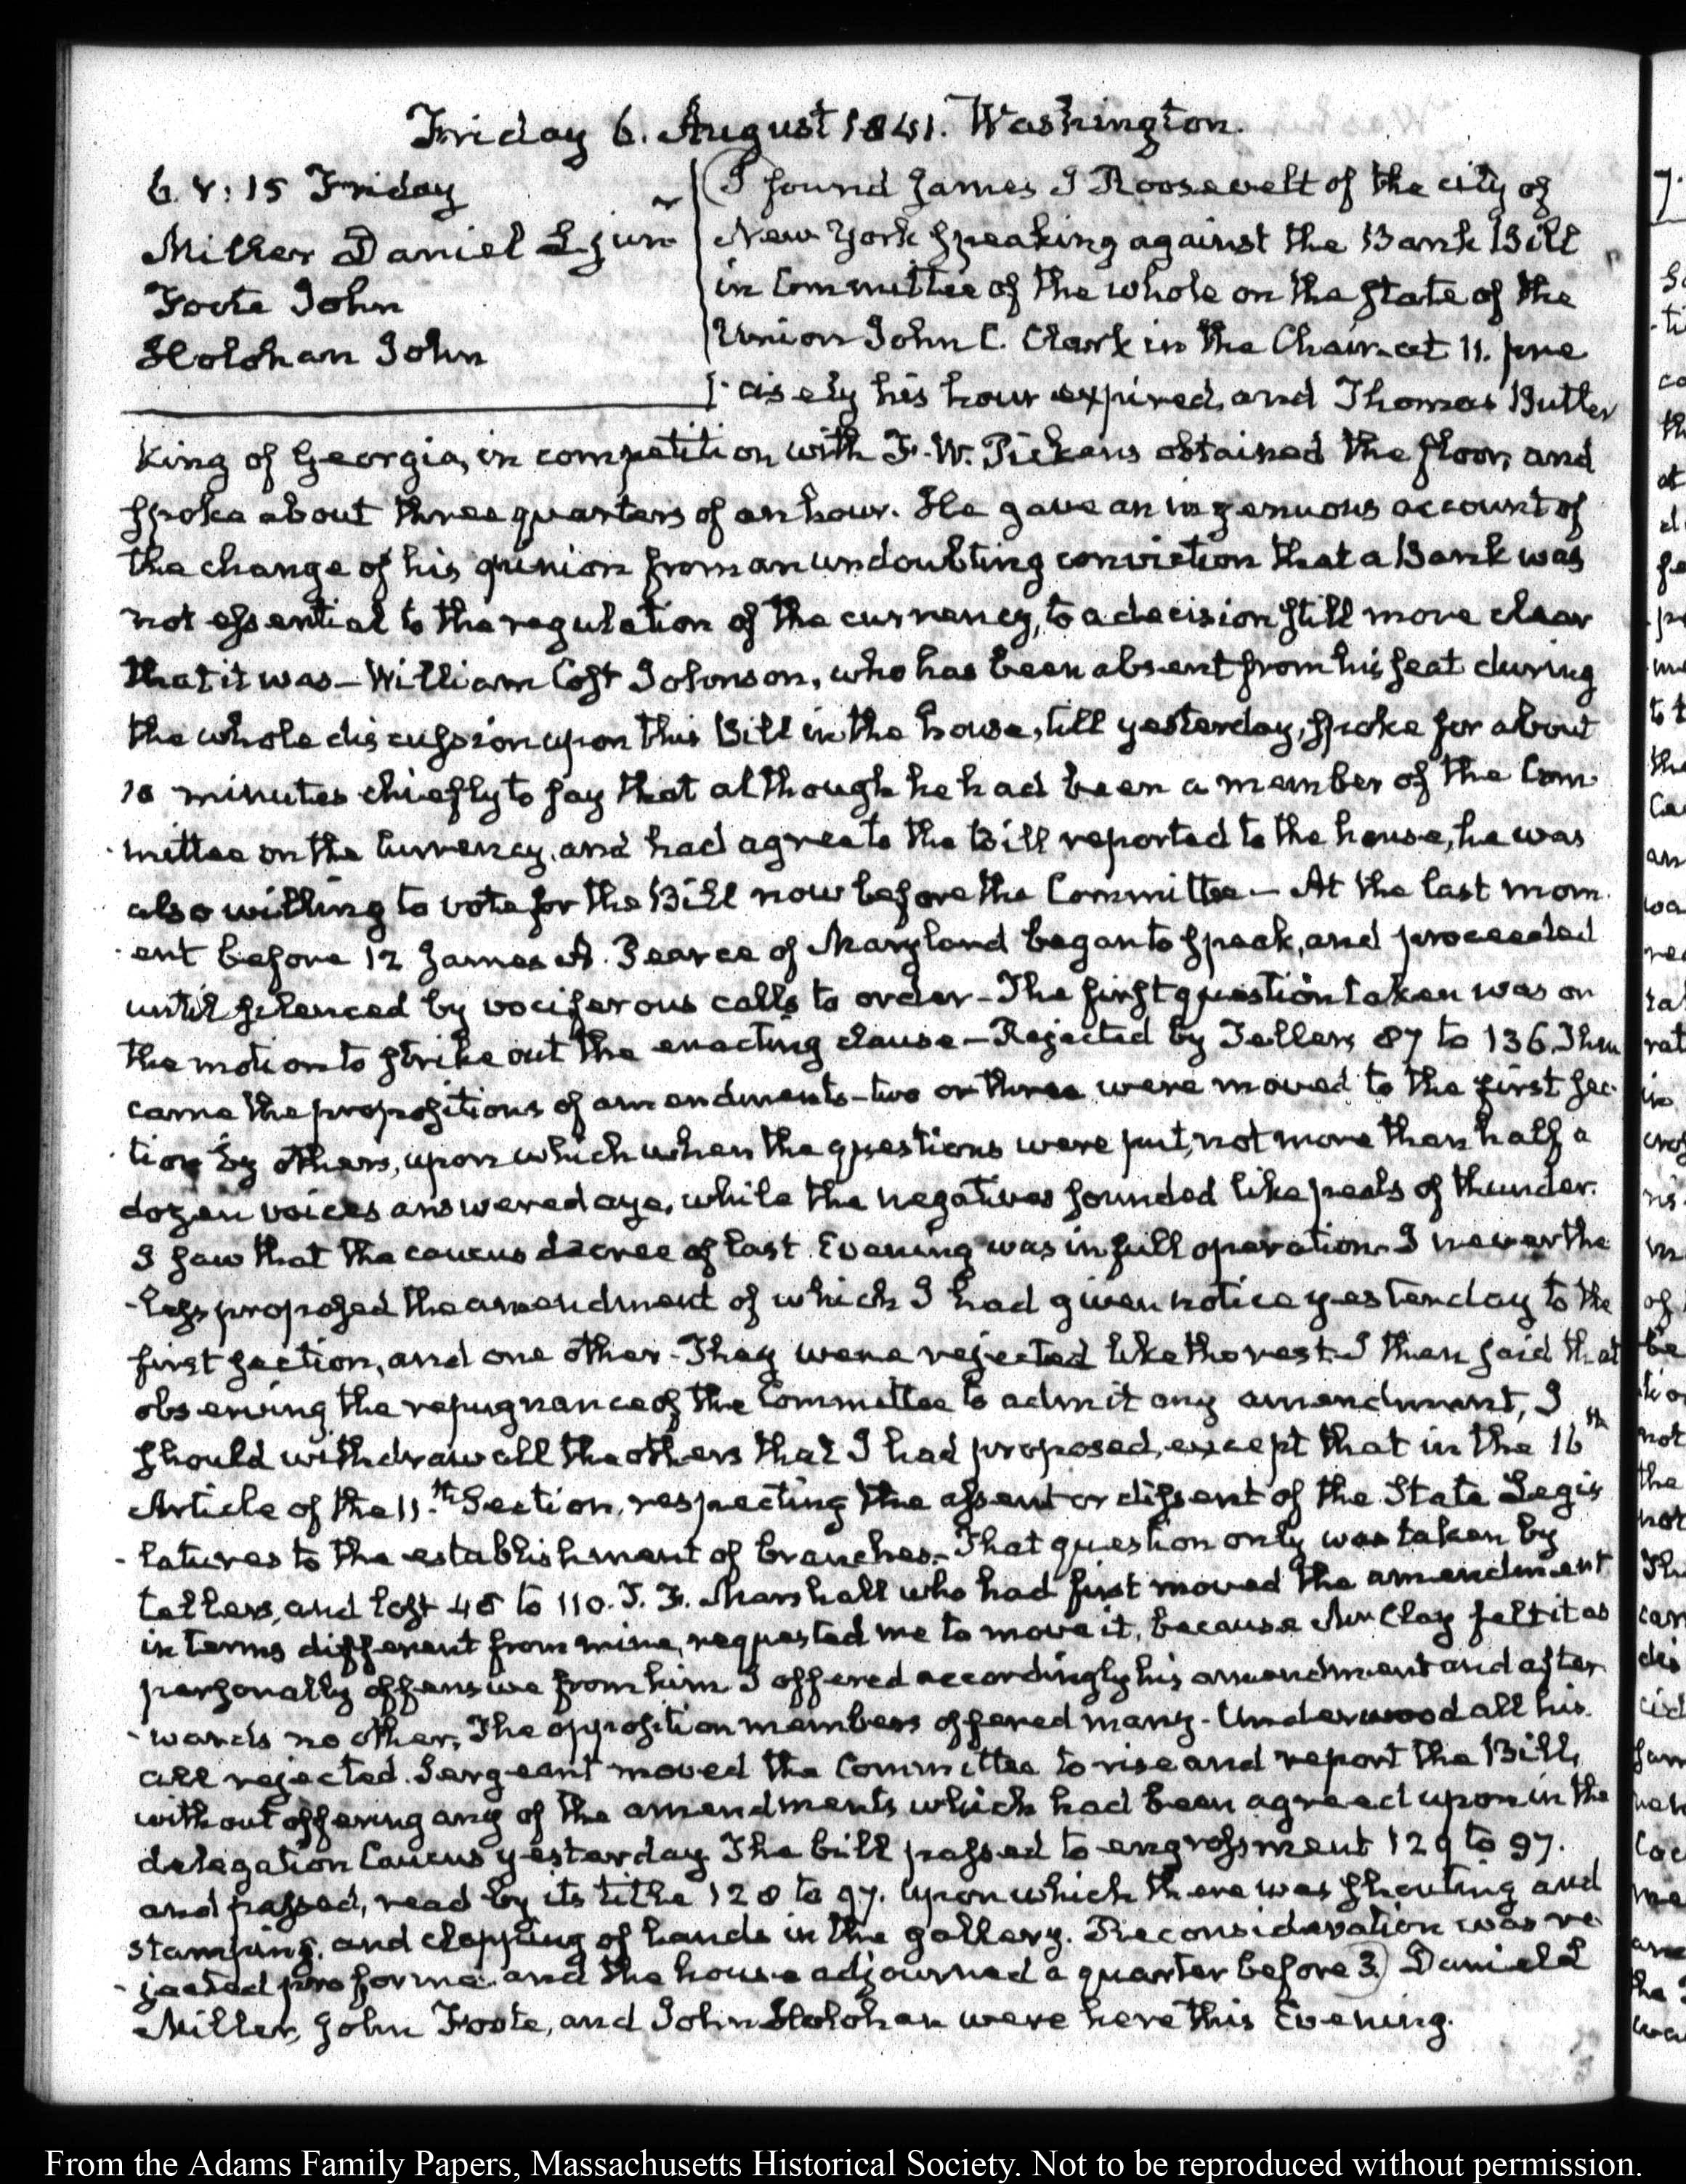 Friday 6. August 1841. Washington.
6. V: 15 Friday
Miller Daniel L jun
Foote John
Holohan John
I found James I Roosevelt of the city of
New York speaking against the Bank Bill
in Committee of the whole on the state of the
Union John C. Clark in the Chair at 11. pre
-cisely his hour expired, and Thomas Butler
King of Georgia, in competition with F. W. Pickens obtained the floor, and
spoke about three quarters of an hour. He gave an ingenuous account of
the change of his opinion from an undoubting conviction that a Bank was
not essential to the regulation of the currency, to a decision still more clear
that it was — William Cost Johnson, who has been absent from his seat during
the whole discussion upon this Bill in the house, till yesterday, spoke for about
10 minutes chiefly to say that although he had been a member of the Com
-mittee on the Currency, and had agree to the Bill reported to the house, he was
also willing to vote for the Bill now before the Committee — At the last mom
-ent before 12 James A. Pearce of Maryland began to speak, and proceeded
until silenced by vociferous calls to order — The first question taken was on
the motion to strike out the enacting clause — Rejected by Tellers 87 to 136. Then
came the propositions of amendments — two or three were moved to the first sec
-tion by others, upon which when the questions were put, not more than half a
dozen voices answered aye, while the negatives sounded like peals of thunder.
I saw that the caucus decree of last Evening was in full operation. I neverthe
-less proposed the amendment of which I had given notice yesterday to the
first section, and one other — They were rejected like the rest. I then said that
observing the repugnance of the Committee to admit any amendment, I
should withdraw all the others that I had proposed, except that in the 16th
Article of the 11.th Section, respecting the assent or dissent of the State Legis
-latures to the establishment of branches. That question only was taken by
tellers, and lost 48 to 110. T. F. Marshall who had first moved the amendment
in terms different from mine, requested me to move it, because Mr Clay felt it as
personally offensive from him I offered accordingly his amendment and after
-wards no other. The opposition members offered many — Underwood all his
all rejected. Sergeant moved the Committee to rise and report the Bill,
without offering any of the amendments which had been agreed upon in the
delegation Caucus yesterday The bill passed to engrossment 129 to 97.
and passed, read by its title 128 to 97. upon which there was shouting and
stamping, and clapping of hands in the gallery. Reconsideration was re
-jected pro forma and the house adjourned a quarter before 3. Daniel L
Miller, John Foote, and John Holohan were here this Evening.
From the Adams Family Papers, Massachusetts Historical Society. Not to be reproduced without permission.